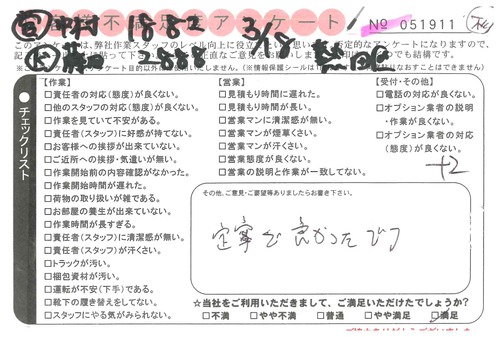 不満足度アンケート
営 中村 1882 3/15 № 051911
このアンケートは、弊社作業スタッフのレベル向上に役立
否定的なアンケートになりますので、
でも結構です。
【作業】
□責任者の対応(態度)が良くない。
□他のスタッフの対応(態度)が良くない。
□作業を見ていて不安がある。
□責任者(スタッフ)に好感が持てない。
□お客様への挨拶が出来ていない。
□ご近所への挨拶・気遣いが無い。
□作業開始前の内容確認がなかった。
□作業開始時間が遅れた。
□荷物の取り扱いが雑である。
□お部屋の養生が出来ていない。
□作業時間が長すぎる。
□責任者(スタッフ)に清潔感が無い。
□責任者(スタッフ)が汗くさい。
□トラックが汚い。
□梱包資材が汚い。
□運転が不安(下手)である。
□靴下の履き替えをしてない。
□スタッフにやる気がみられない。
【営業】
□見積もり時間に遅れた。
□見積もり時間が長い。
□営業マンに清潔感が無い。
□営業マンが煙草くさい。
□営業マンが汗くさい。
□営業態度が良くない。
□営業の説明と作業が一致してない。
【受付・その他】
□電話の対応が良くない。
□オプション業者の説明
・作業が良くない。
□オプション業者の対応
(態度)が良くない。
+2
チェックリスト
その他、ご意見・ご要望等ありましたらお書き下さい。
丁寧で良かったです
☆当社をご利用いただきまして、ご満足いただけたでしょうか?
□不満 □やや不満 □普通 □やや満足 □満足